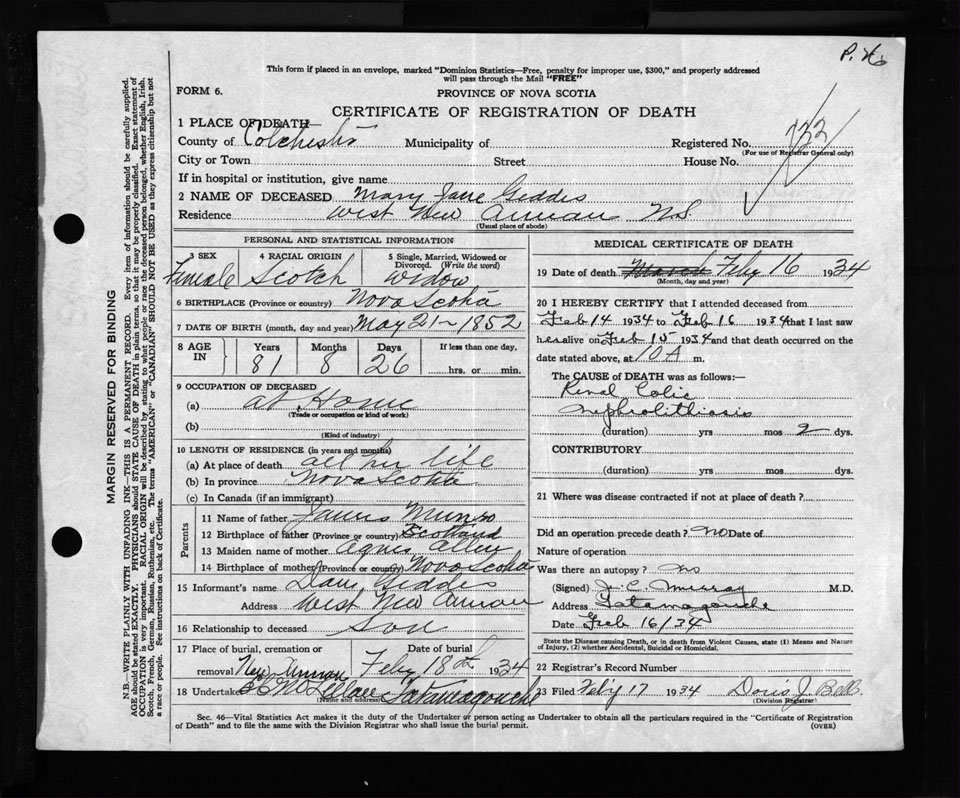 P. No
This form if placed in an envelope, marked "Dominion Statistics—Free, penalty for improper use, $300," and properly addressed
will pass through the Mail "FREE"
FORM 6.
PROVINCE OF NOVA SCOTIA
CERTIFICATE OF REGISTRATION OF DEATH
1 PLACE OF DEATH—
County of Colchester Municipality of Registered No. 732
(For use of Registrar General only)
City or Town Street House No.
If in hospital or institution, give name
2 NAME OF DECEASED Mary Jane Geddis
Residence West New Annan N.S.
(Usual place of abode)
PERSONAL AND STATISTICAL INFORMATION
3 SEX 4 RACIAL ORIGIN 5 Single, Married, Widowed or
Divorced. (Write the word)
Female Scotch Widow
6 BIRTHPLACE (Province or country) Nova Scotia
7 DATE OF BIRTH (month, day and year) May 21- 1852
8 AGE IN Years Months Days If less than one day.
81 8 26 hrs. or min.
9 OCCUPATION OF DECEASED
(a) at Home
(Trade or occupation or kind of work)
(b)
(Kind of industry)
10 LENGTH OF RESIDENCE (in years and months)
(a) At place of death all her life
(b) In province Nova Scotia
(c) In Canada (if an immigrant)
Parents
11 Name of father James Munro
12 Birthplace of father (Province or country) Scotland
13 Maiden name of mother Agnes Allen
14 Birthplace of mother (Province or country) Nova Scotia
15 Informant's name Dave Geddis
Address West New Annan
16 Relationship to deceased Son
17 Place of burial, cremation or Date of burial
removal New Annan Feby 18th 1934
18 Undertaker McLellan Tatamagouche
(Name and address)
MEDICAL CERTIFICATE OF DEATH
19 Date of death March Feby 16 1934
(Month, day and year)
20 I HEREBY CERTIFY that I attended deceased from
Feb 14 1934 to Feb 16 1934 that I last saw
her alive on Feb 15 1934 and that death occurred on the
date stated above, at 10 A m.
The CAUSE of DEATH was as follows:—
Renal Colic
Nephrolithiasis
(duration) yrs mos 2 dys.
CONTRIBUTORY
(duration) yrs mos dys.
21 Where was disease contracted if not at place of death?
Did an operation precede death? No Date of
Nature of operation
Was there an autopsy? No
(Signed) J. C. Murray M.D.
Address Tatamagouche
Date Feb 16/34
State the Disease causing Death, or in death from Violent Causes, state (1) Means and Nature
of Injury, (2) whether Accidental, Suicidal or Homicidal.
22 Registrar's Record Number
23 Filed Feby 17 1934 Doris J. Bell
(Division Registrar)
Sec. 46—Vital Statistics Act makes it the duty of the Undertaker or person acting as Undertaker to obtain all the particulars required in the "Certificate of Registration
of Death" and to file the same with the Division Registrar who shall issue the burial permit. (OVER)
MARGIN RESERVED FOR BINDING
N.B.—WRITE PLAINLY WITH UNFADING INK—THIS IS A PERMANENT RECORD. Every item of information should be carefully supplied.
AGE should be stated EXACTLY. PHYSICIANS should STATE CAUSE OF DEATH in plain terms, so that it may be properly classified. Exact statement of
OCCUPATION is very important. RACIAL ORIGIN will be described by stating to what people or race the deceased person belonged, whether English, Irish,
Scotch, French, German, Russian, Ruthenian, etc. The terms "AMERICAN" or "CANADIAN" SHOULD NOT BE USED as they express citizenship but not
a race or people. See instructions on back of Certificate.